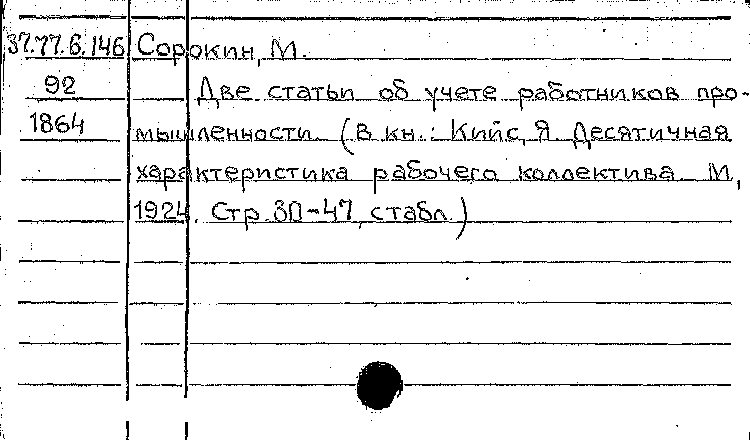 37.77.6.146 Сорокин, М.
92 Две статьи об учете работников про-
1864 мышленности. (В кн.: Кийс, Я. Десятичная
характеристика рабочего коллектива. М,
1924. Стр. 30-47, стабл.)